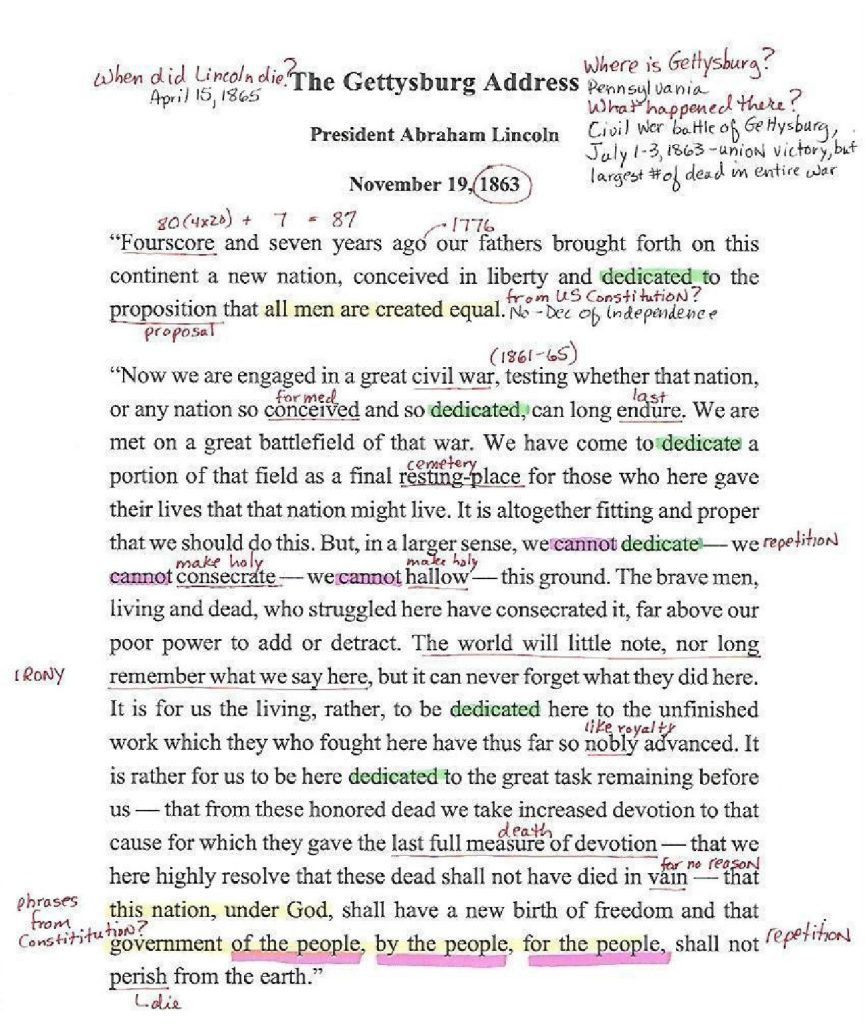 When did Lincoln die?
April 15, 1865
The Gettysburg Address
Where is Gettysburg?
Pennsylvania
What happened there?
Civil War battle of Gettysburg,
July 1-3, 1863 - union victory, but
largest # of dead in entire war
President Abraham Lincoln
November 19, 1863
80 (4x20) + 7 = 87
1776
“Fourscore and seven years ago our fathers brought forth on this
continent a new nation, conceived in liberty and dedicated to the
proposition that all men are created equal.
from US Constitution?
No - Dec of Independence
proposal
(1861-65)
“Now we are engaged in a great civil war, testing whether that nation,
formed
last
or any nation so conceived and so dedicated, can long endure. We are
met on a great battlefield of that war. We have come to dedicate a
cemetery
portion of that field as a final resting-place for those who here gave
their lives that that nation might live. It is altogether fitting and proper
that we should do this. But, in a larger sense, we cannot dedicate — we
repetition
make holy
make holy
cannot consecrate — we cannot hallow — this ground. The brave men,
living and dead, who struggled here have consecrated it, far above our
poor power to add or detract. The world will little note, nor long
IRONY
remember what we say here, but it can never forget what they did here.
It is for us the living, rather, to be dedicated here to the unfinished
like royalty
work which they who fought here have thus far so nobly advanced. It
is rather for us to be here dedicated to the great task remaining before
us — that from these honored dead we take increased devotion to that
death
cause for which they gave the last full measure of devotion — that we
for no reason
here highly resolve that these dead shall not have died in vain — that
phrases
from
Constititution?
this nation, under God, shall have a new birth of freedom and that
government of the people, by the people, for the people, shall not
repetition
perish from the earth.”
die